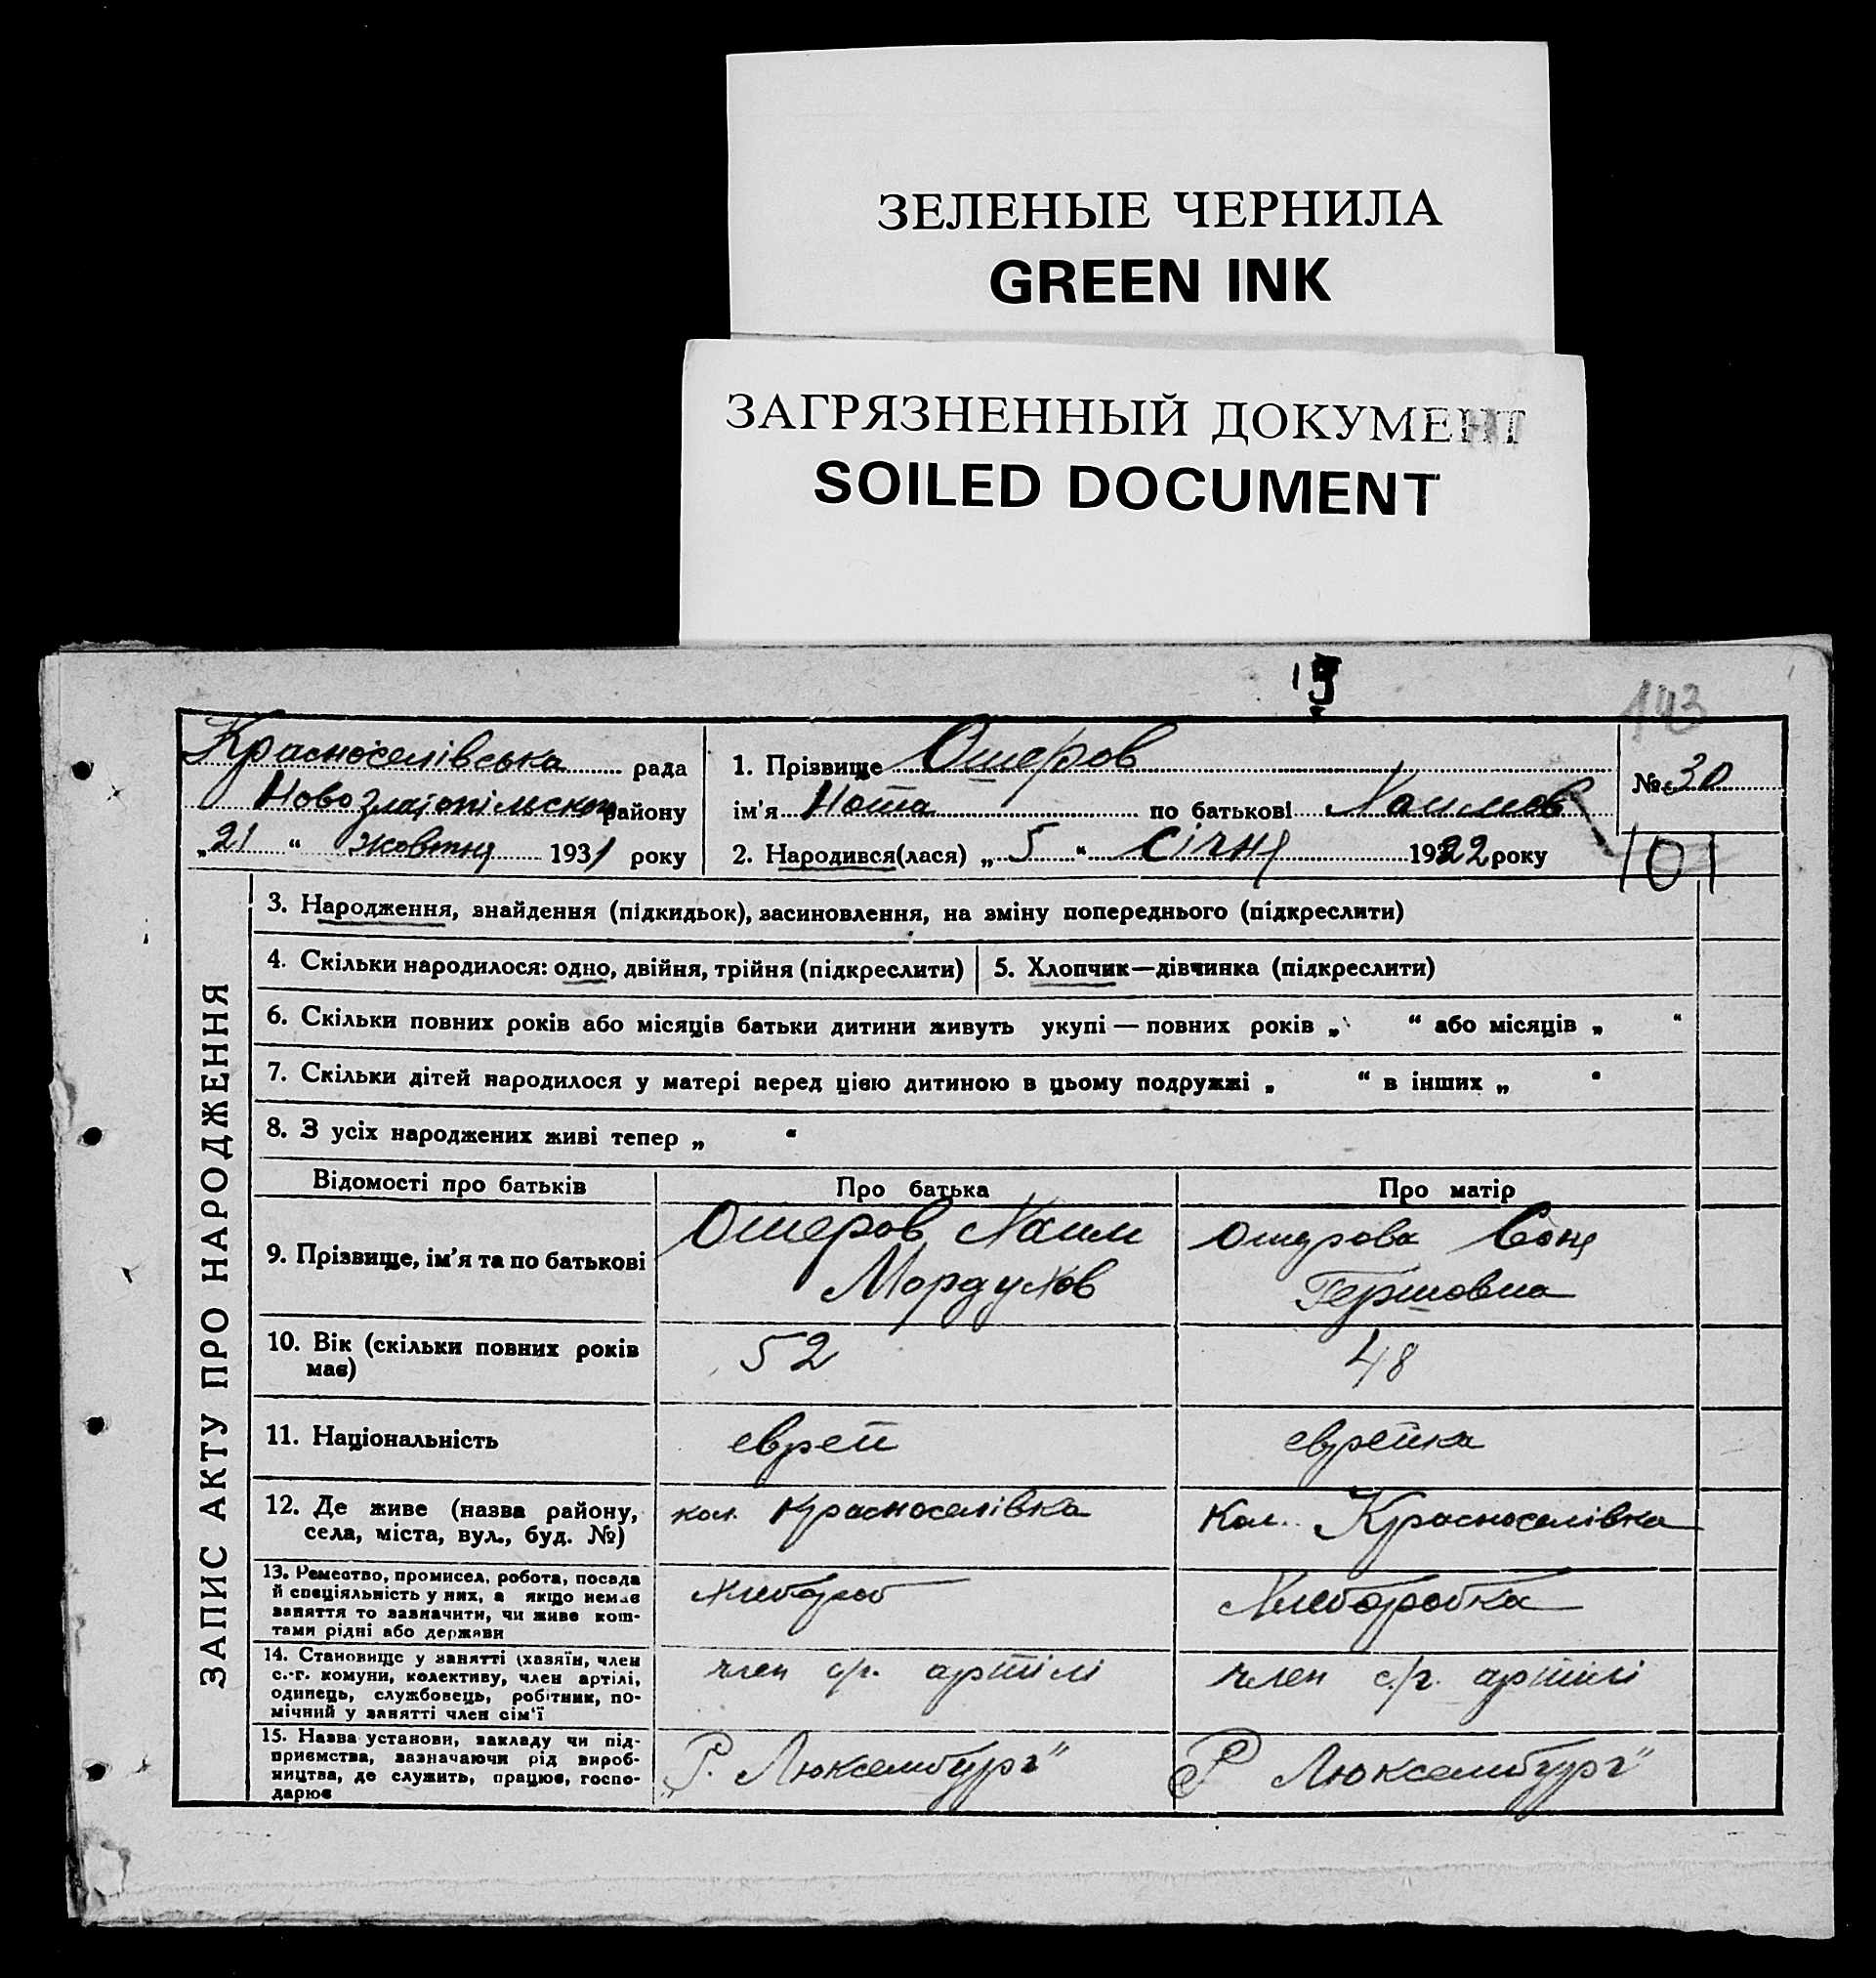 ЗЕЛЕНЫЕ ЧЕРНИЛА
GREEN INK
ЗАГРЯЗНЕННЫЙ ДОКУМЕНТ
SOILED DOCUMENT
15
143
Красноселівська рада
Ново Златопільського району
„21“ жовтня 1931 року
1. Прізвище Ошеров
ім'я Нота по батькові Хаимов
2. Народився(лася) „5“ Січня 1922 року
№ 30
101
ЗАПИС АКТУ ПРО НАРОДЖЕННЯ
3. Народження, знайдення (підкидьок), засиновлення, на зміну попереднього (підкреслити)
4. Скільки народилося: одно, двійня, трійня (підкреслити)
5. Хлопчик—дівчинка (підкреслити)
6. Скільки повних років або місяців батьки дитини живуть укупі — повних років „ “ або місяців „ “
7. Скільки дітей народилося у матері перед цією дитиною в цьому подружжі „ “ в інших „ “
8. З усіх народжених живі тепер „ “
Відомості про батьків
Про батька
Про матір
9. Прізвище, ім'я та по батькові
Ошеров Хаим
Мордухов
Ошерова Соня
Гершовна
10. Вік (скільки повних років
має)
52
48
11. Національність
еврей
еврейка
12. Де живе (назва району,
села, міста, вул., буд. №)
кол. Красноселівка
Кол. Красноселівка
13. Ремество, промисел, робота, посада
й спеціяльність у них, а якщо немає
заняття то зазначити, чи живе кош-
тами рідні або держави
Хлебороб
Хлеборобка
14. Становище у занятті (хазяїн, член
с.-г. комуни, колективу, член артілі,
одинець, службовець, робітник, по-
мічний у занятті член сім'ї
член с/г. артілі
член с/г. артілі
15. Назва установи, закладу чи під-
приємства, зазначаючи рід вироб-
ництва, де служить, працює, госпо-
дарює
„Р. Люксембург“
„Р Люксембург“